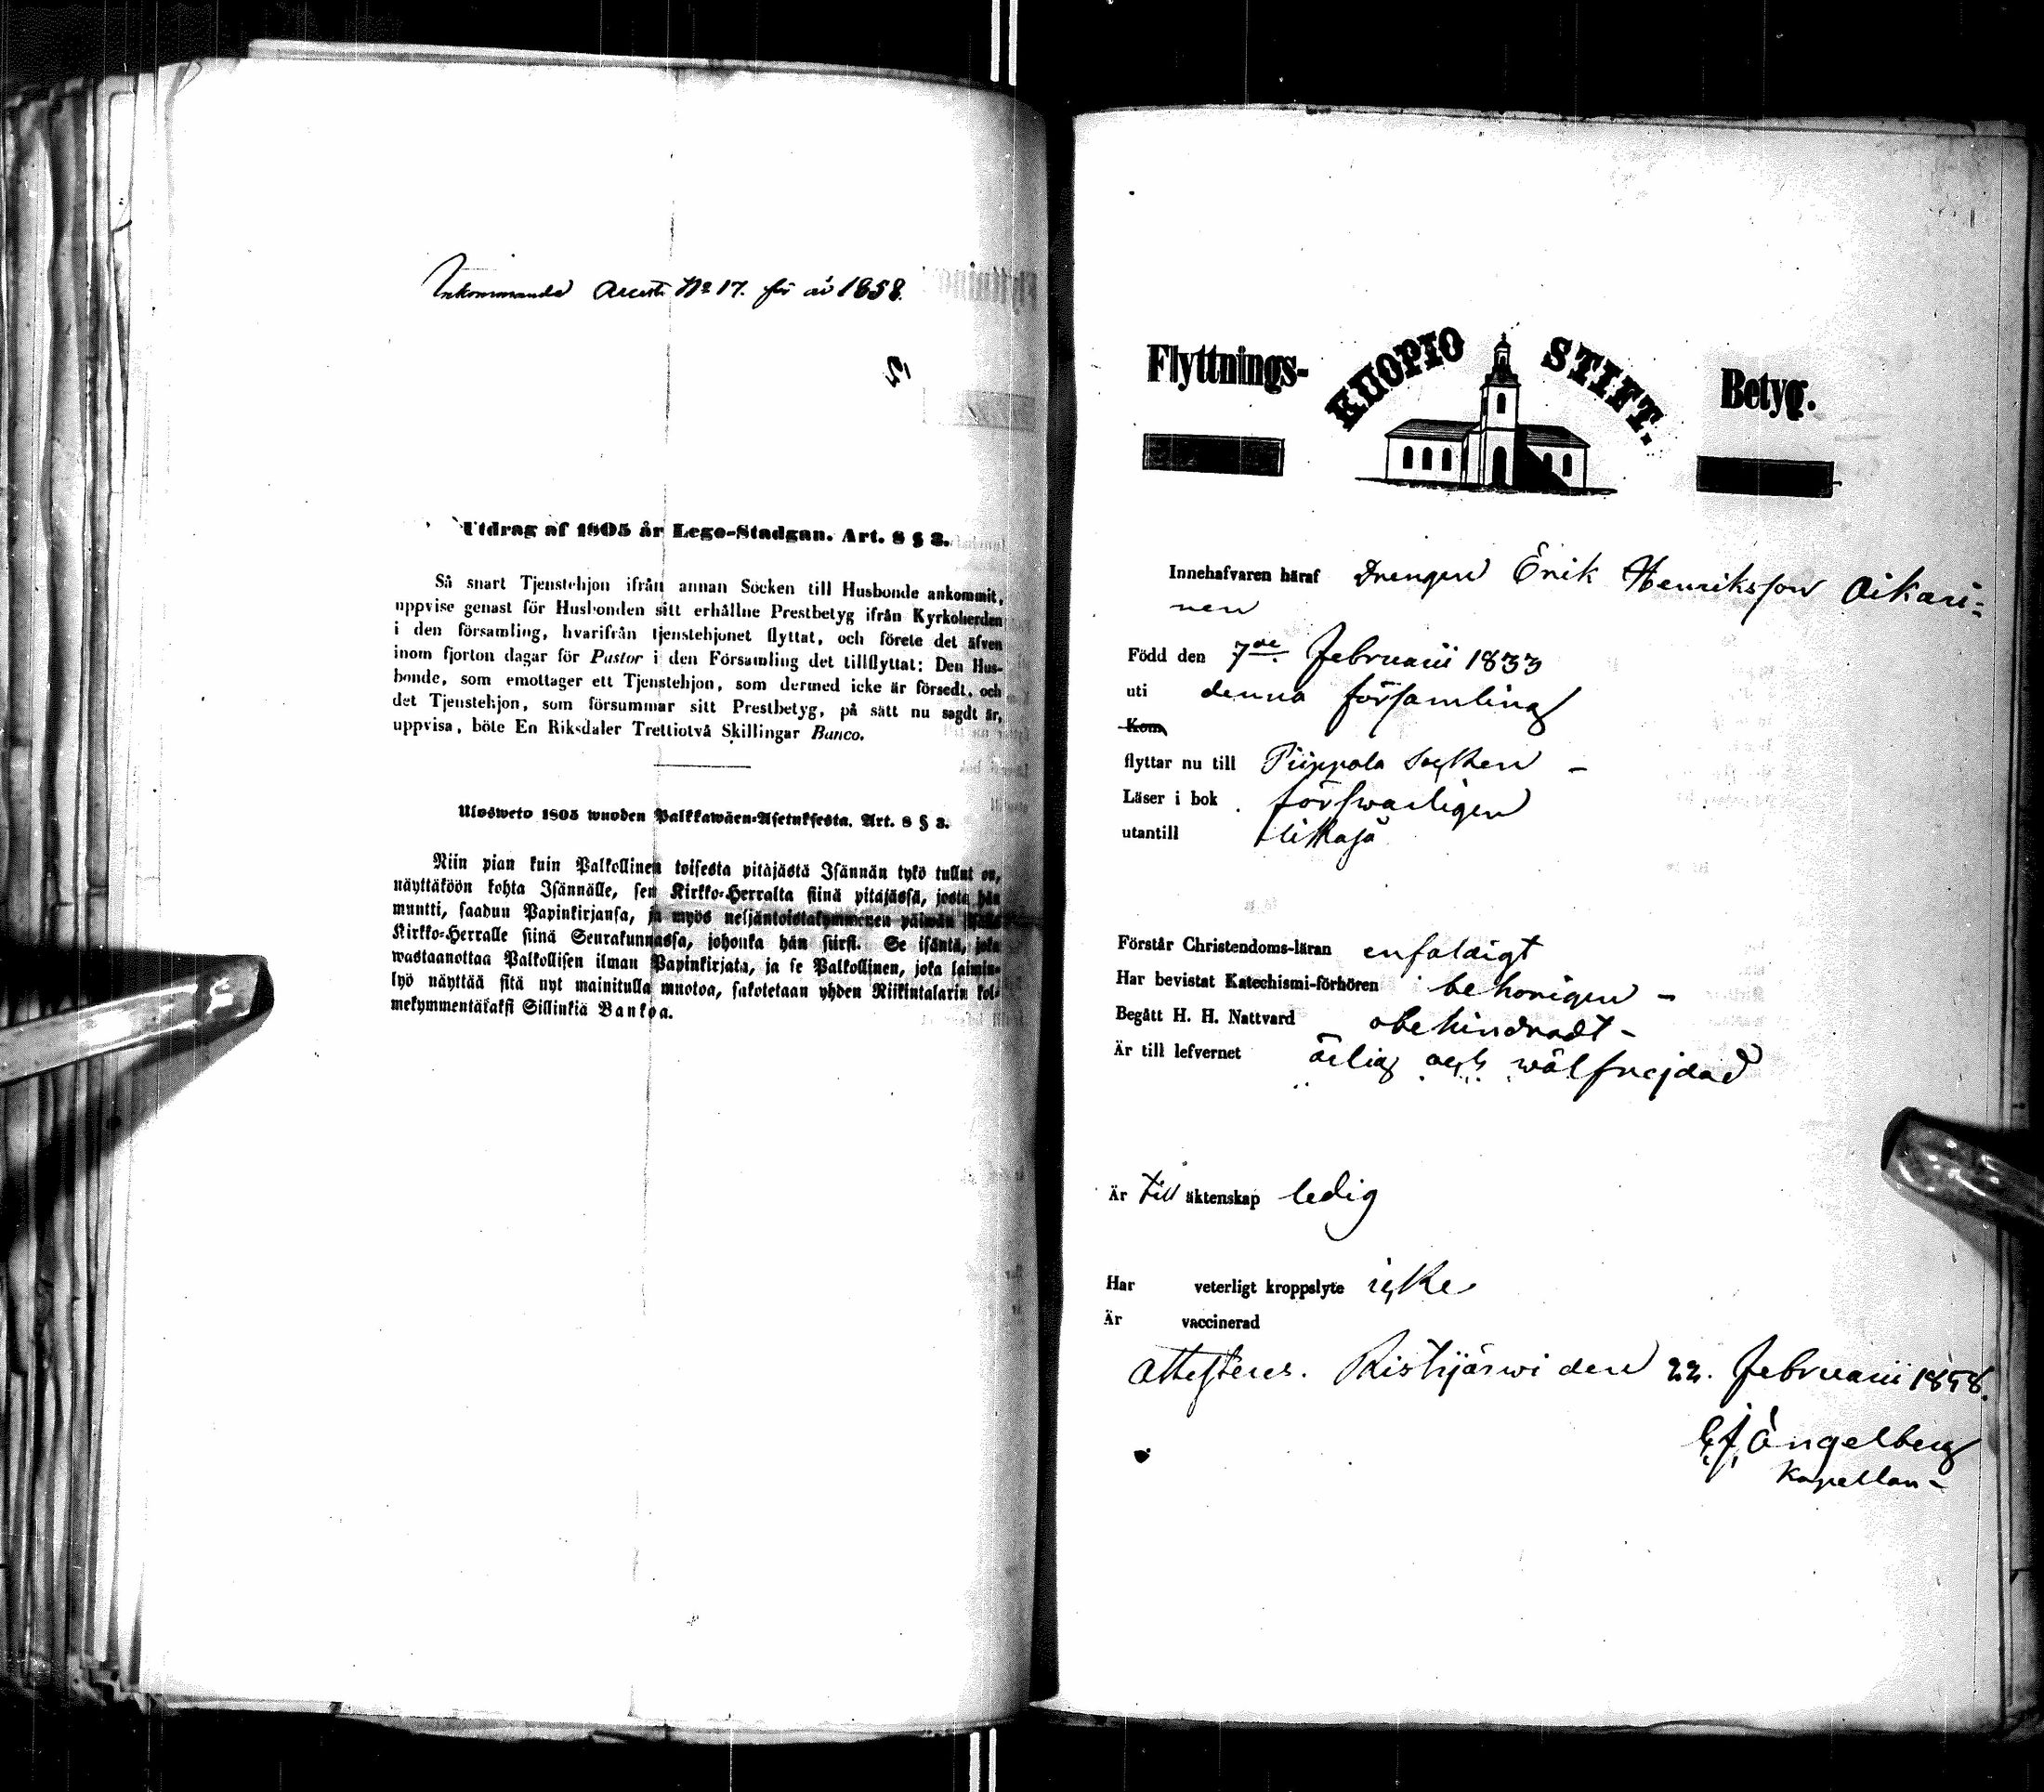 Inkommande Attest No 17. för år 1858.
Utdrag af 1805 år Lego-Stadgan. Art. 8 § 3.
Så snart Tjenstehjon ifrån annan Socken till Husbonde ankommit,
uppvise genast för Husbonden sitt erhållne Prestbetyg ifrån Kyrkoherden
i den församling, hvarifrån tjenstehjonet flyttat, och förete det äfven
inom fjorton dagar för Pastor i den Församling det tillflyttat: Den Hus-
bonde, som emottager ett Tjenstehjon, som dermed icke är försedt, och
det Tjenstehjon, som försummar sitt Prestbetyg, på sätt nu sagdt är,
uppvisa, böte En Riksdaler Trettiotvå Skillingar Banco.
Ulosweto 1805 wuoden Palkkawäen-Asetuksesta. Art. 8 § 3.
Niin pian kuin Palkollinen toisesta pitäjästä Isännän tykö tullut on,
näyttäköön kohta Isännälle, sen Kirkko-Herralta siinä pitäjässä, josta hän
muutti, saadun Papinkirjansa, ja myös neljäntoistakymmenen päiwän
Kirkko-Herralle siinä Seurakunnassa, johonka hän siirsi. Se isäntä, joka
wastaanottaa Palkollisen ilman Papinkirjata, ja se Palkollinen, joka laimin-
lyö näyttää sitä nyt mainitulla muotoa, sakotetaan yhden Riikintalarin kol-
mekymmentäkaksi Sillinkiä Bankoa.
Flyttnings- KUOPIO STIFT. Betyg.
Innehafvaren häraf Drengen Erik Henriksson Aikari-
nen
Född den 7de Februarii 1833
uti denna församling
Kom
flyttar nu till Piippola Socken -
Läser i bok försvarligen
utantill likaså
Förstår Christendoms-läran enfaldigt
Har bevistat Katechismi-förhören behörigen -
Begått H. H. Nattvard obehindradt -
Är till lefvernet ärlig och wälfrejdad
Är till äktenskap ledig
Har veterligt kroppslyte icke
Är vaccinerad
Attesteres. Ristijärwi den 22. Februarii 1858.
Ängelberg
Kapellan -